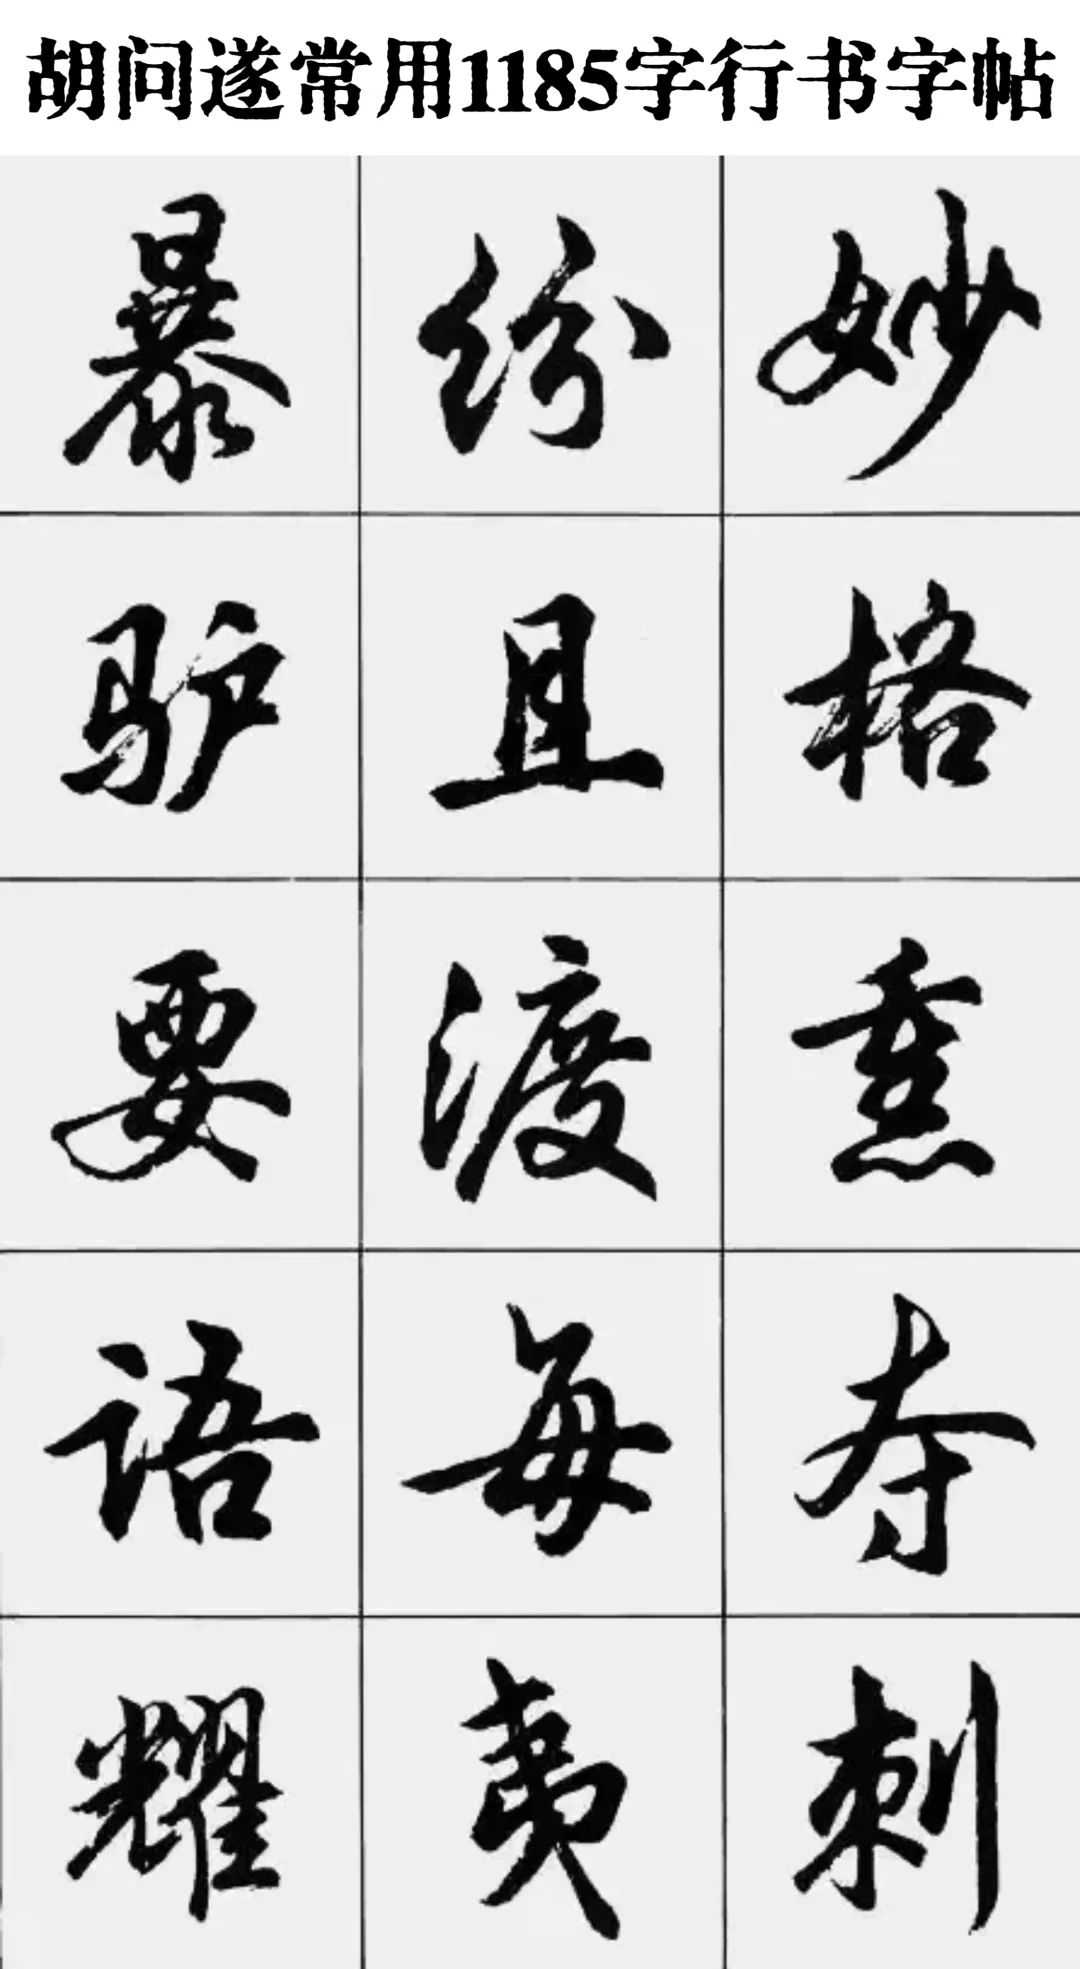 胡问遂常用1185字行书字帖
暴 纷 妙
驴 且 格
要 渡 熏
语 每 夺
耀 夷 刺